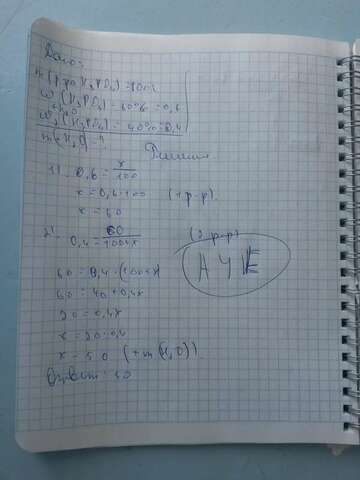 Дано:
m(р-ра H₃PO₄) = 100г
W₁(H₃PO₄) = 60% = 0,6
W₂(H₃PO₄) = 40% = 0,4
m(H₂O) - ?
Решение
1) 0,6 = x/100
x = 0,6·100 (1 р-р).
x = 60
2) 0,4 = 60/100+x (2 р-р)
60 = 0,4·(100+x)
60 = 40+0,4x
20 = 0,4x
x = 20:0,4
x = 50 (+m(H₂O))
Ответ: 50